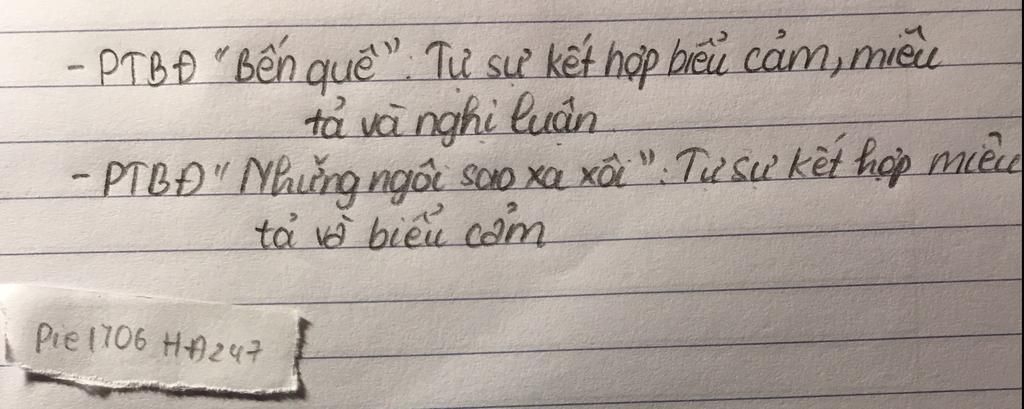 - PTBĐ "Bến quê": Tự sự kết hợp biểu cảm, miêu
tả và nghị luận
- PTBĐ "Những ngôi sao xa xôi": Tự sự kết hợp miêu
tả và biểu cảm
Pie1706 HĐ247